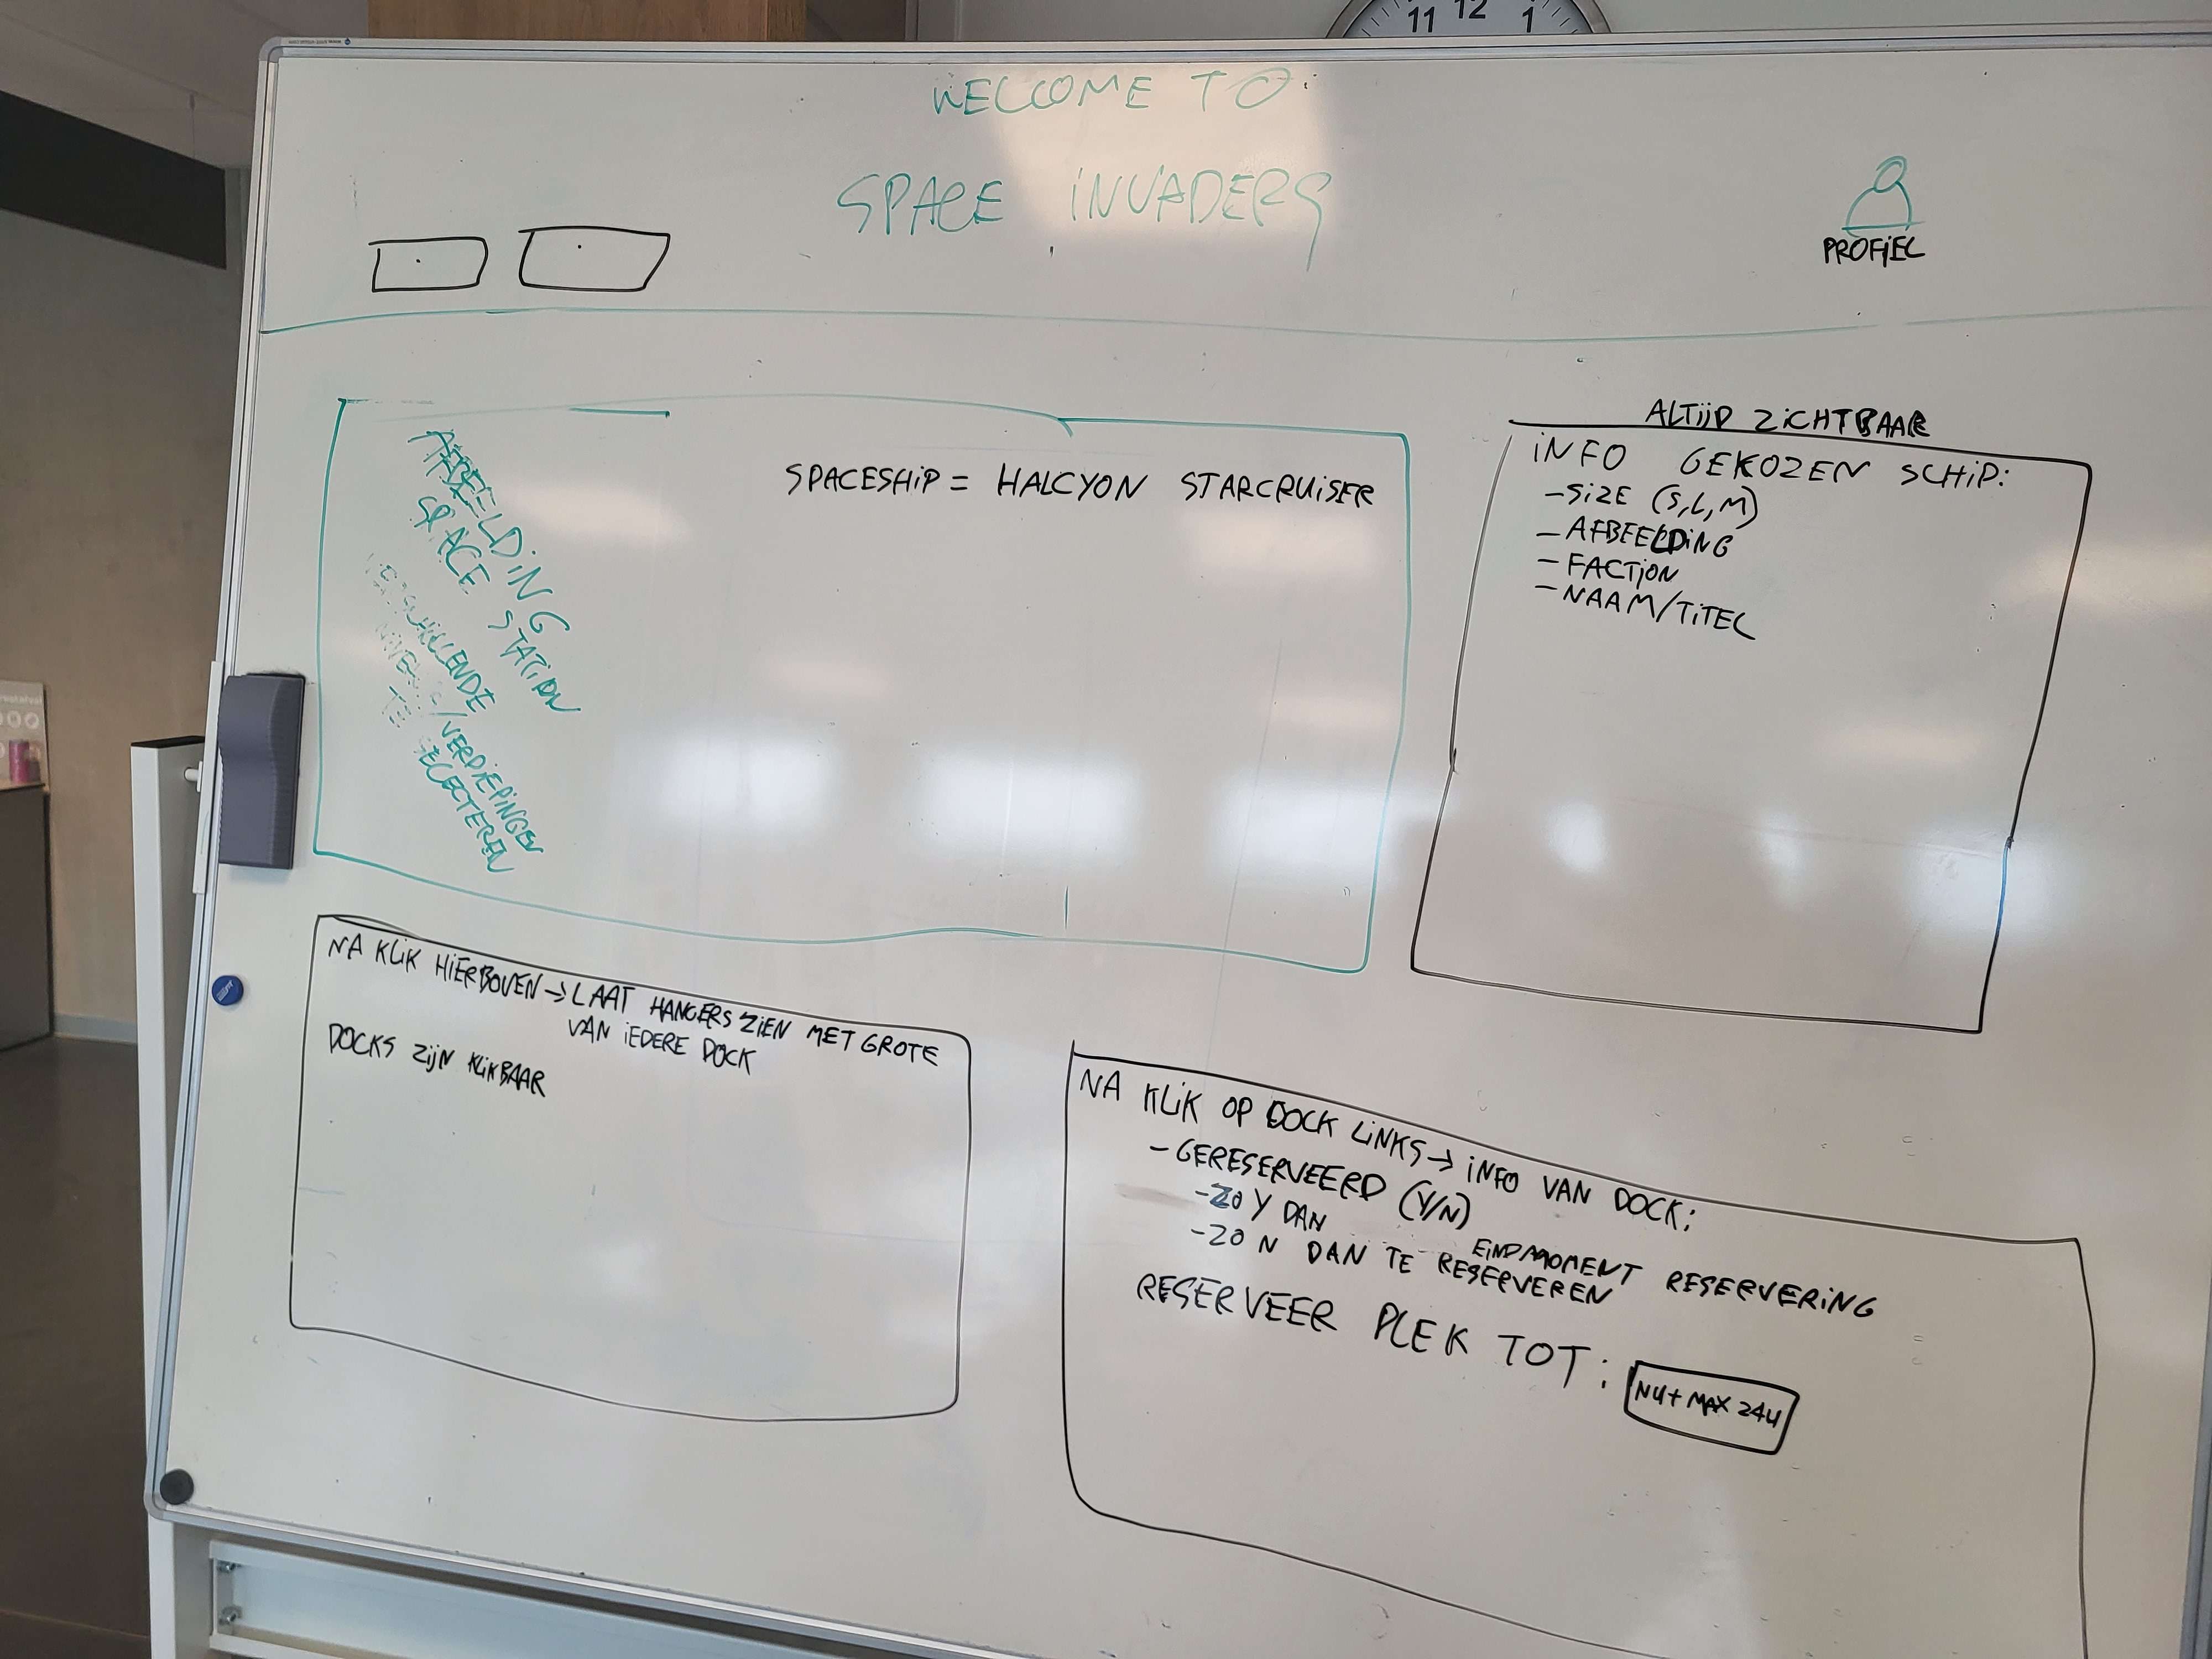 11 12 1
WELCOME TO:
SPACE INVADERS
PROFIEL
AFBEELDING
SPACE STATION
VERSCHILLENDE
/VERDIEPINGEN
TE SELECTEREN
SPACESHIP = HALCYON STARCRUISER
ALTIJD ZICHTBAAR
INFO GEKOZEN SCHIP:
- SIZE (S, L, M)
- AFBEELDING
- FACTION
- NAAM/TITEL
NA KLIK HIERBOVEN → LAAT HANGERS ZIEN MET GROTE
VAN IEDERE DOCK
DOCKS ZIJN KLIKBAAR
NA KLIK OP DOCK LINKS → INFO VAN DOCK:
- GERESERVEERD (Y/N)
- ZO Y DAN EINDMOMENT RESERVERING
- ZO N DAN TE RESERVEREN
RESERVEER PLEK TOT: NU + MAX 24U